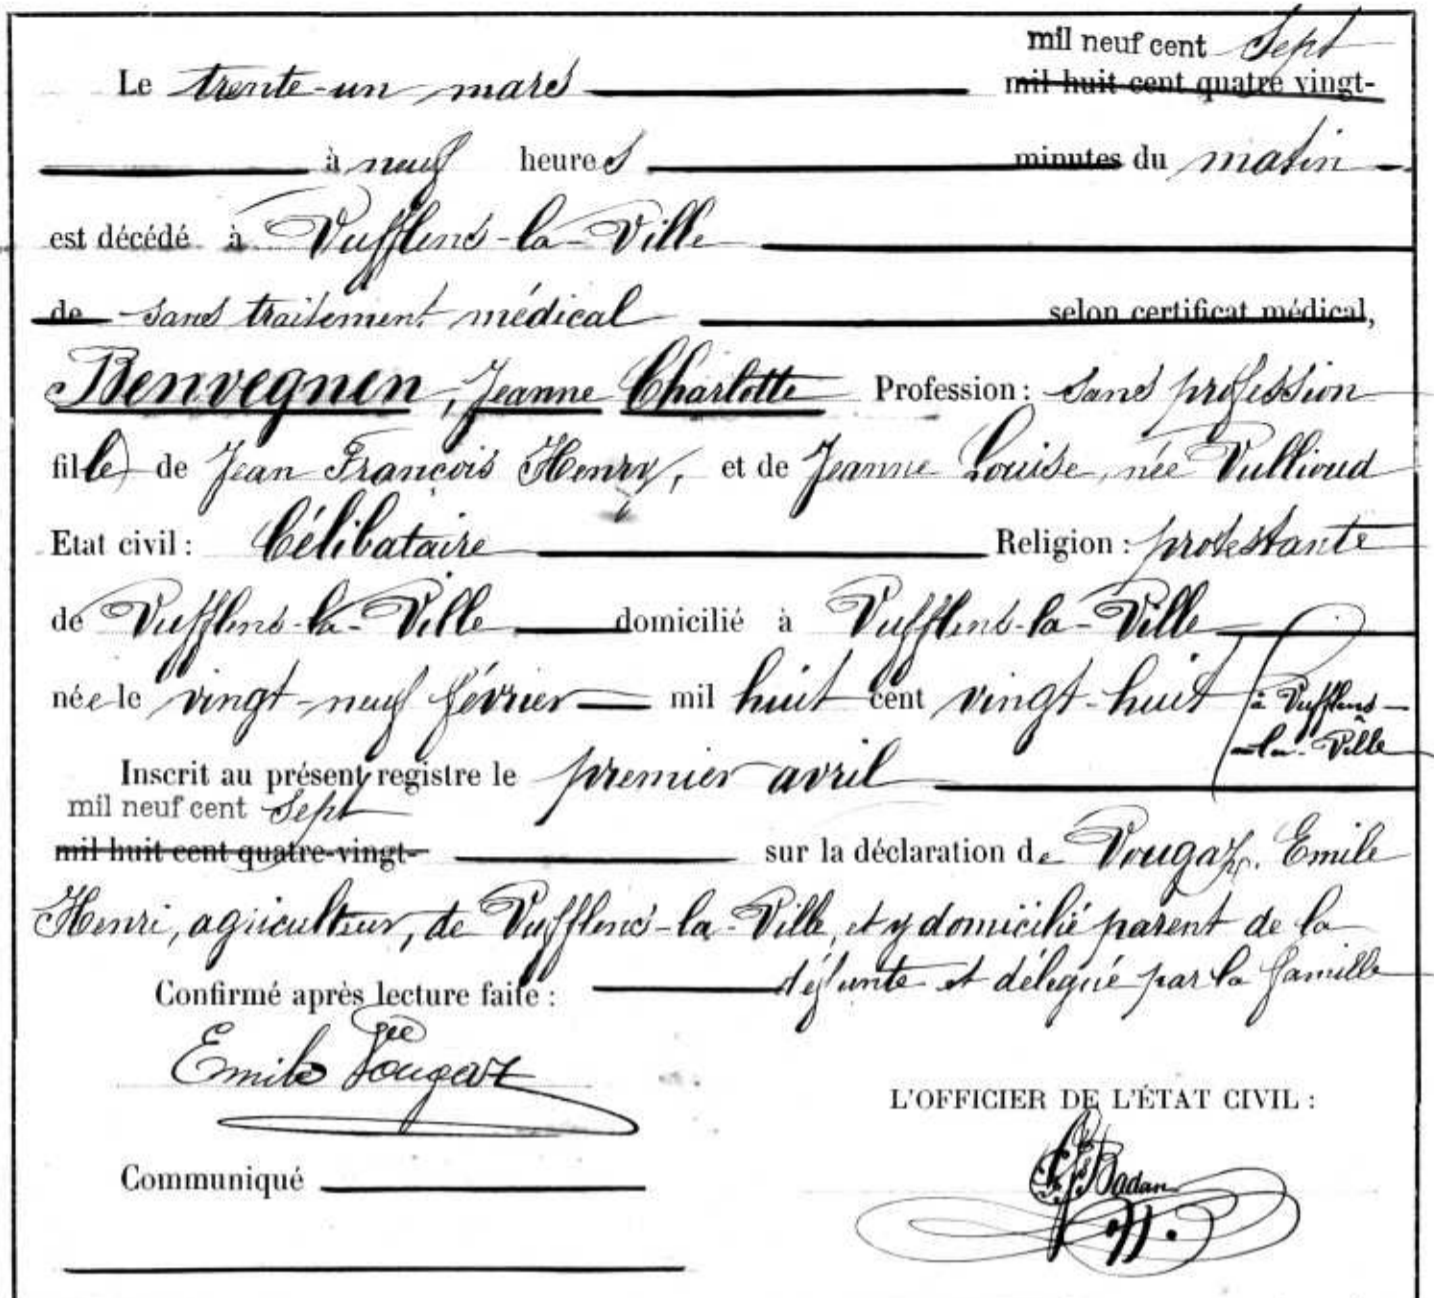 mil neuf cent Sept
Le trente-un mars mil huit cent quatre vingt-
à neuf heures minutes du matin
est décédé à Vufflens-la-Ville
de sans traitement médical selon certificat médical,
Benvegnen, Jeanne Charlotte Profession : sans profession
fille de Jean François Henry, et de Jeanne Louise, née Vullioud
Etat civil : Célibataire Religion : protestante
de Vufflens-la-Ville domicilié à Vufflens-la-Ville
née le vingt-neuf février mil huit cent vingt-huit à Vufflens-
-la-Ville
Inscrit au présent registre le premier avril
mil neuf cent Sept
mil huit cent quatre-vingt- sur la déclaration de Vougaz, Emile
Henri, agriculteur, de Vufflens-la-Ville, et y domicilié parent de la
défunte et délégué par la famille
Confirmé après lecture faite :
Emile Vougaz
L'OFFICIER DE L'ÉTAT CIVIL :
Communiqué
Badan